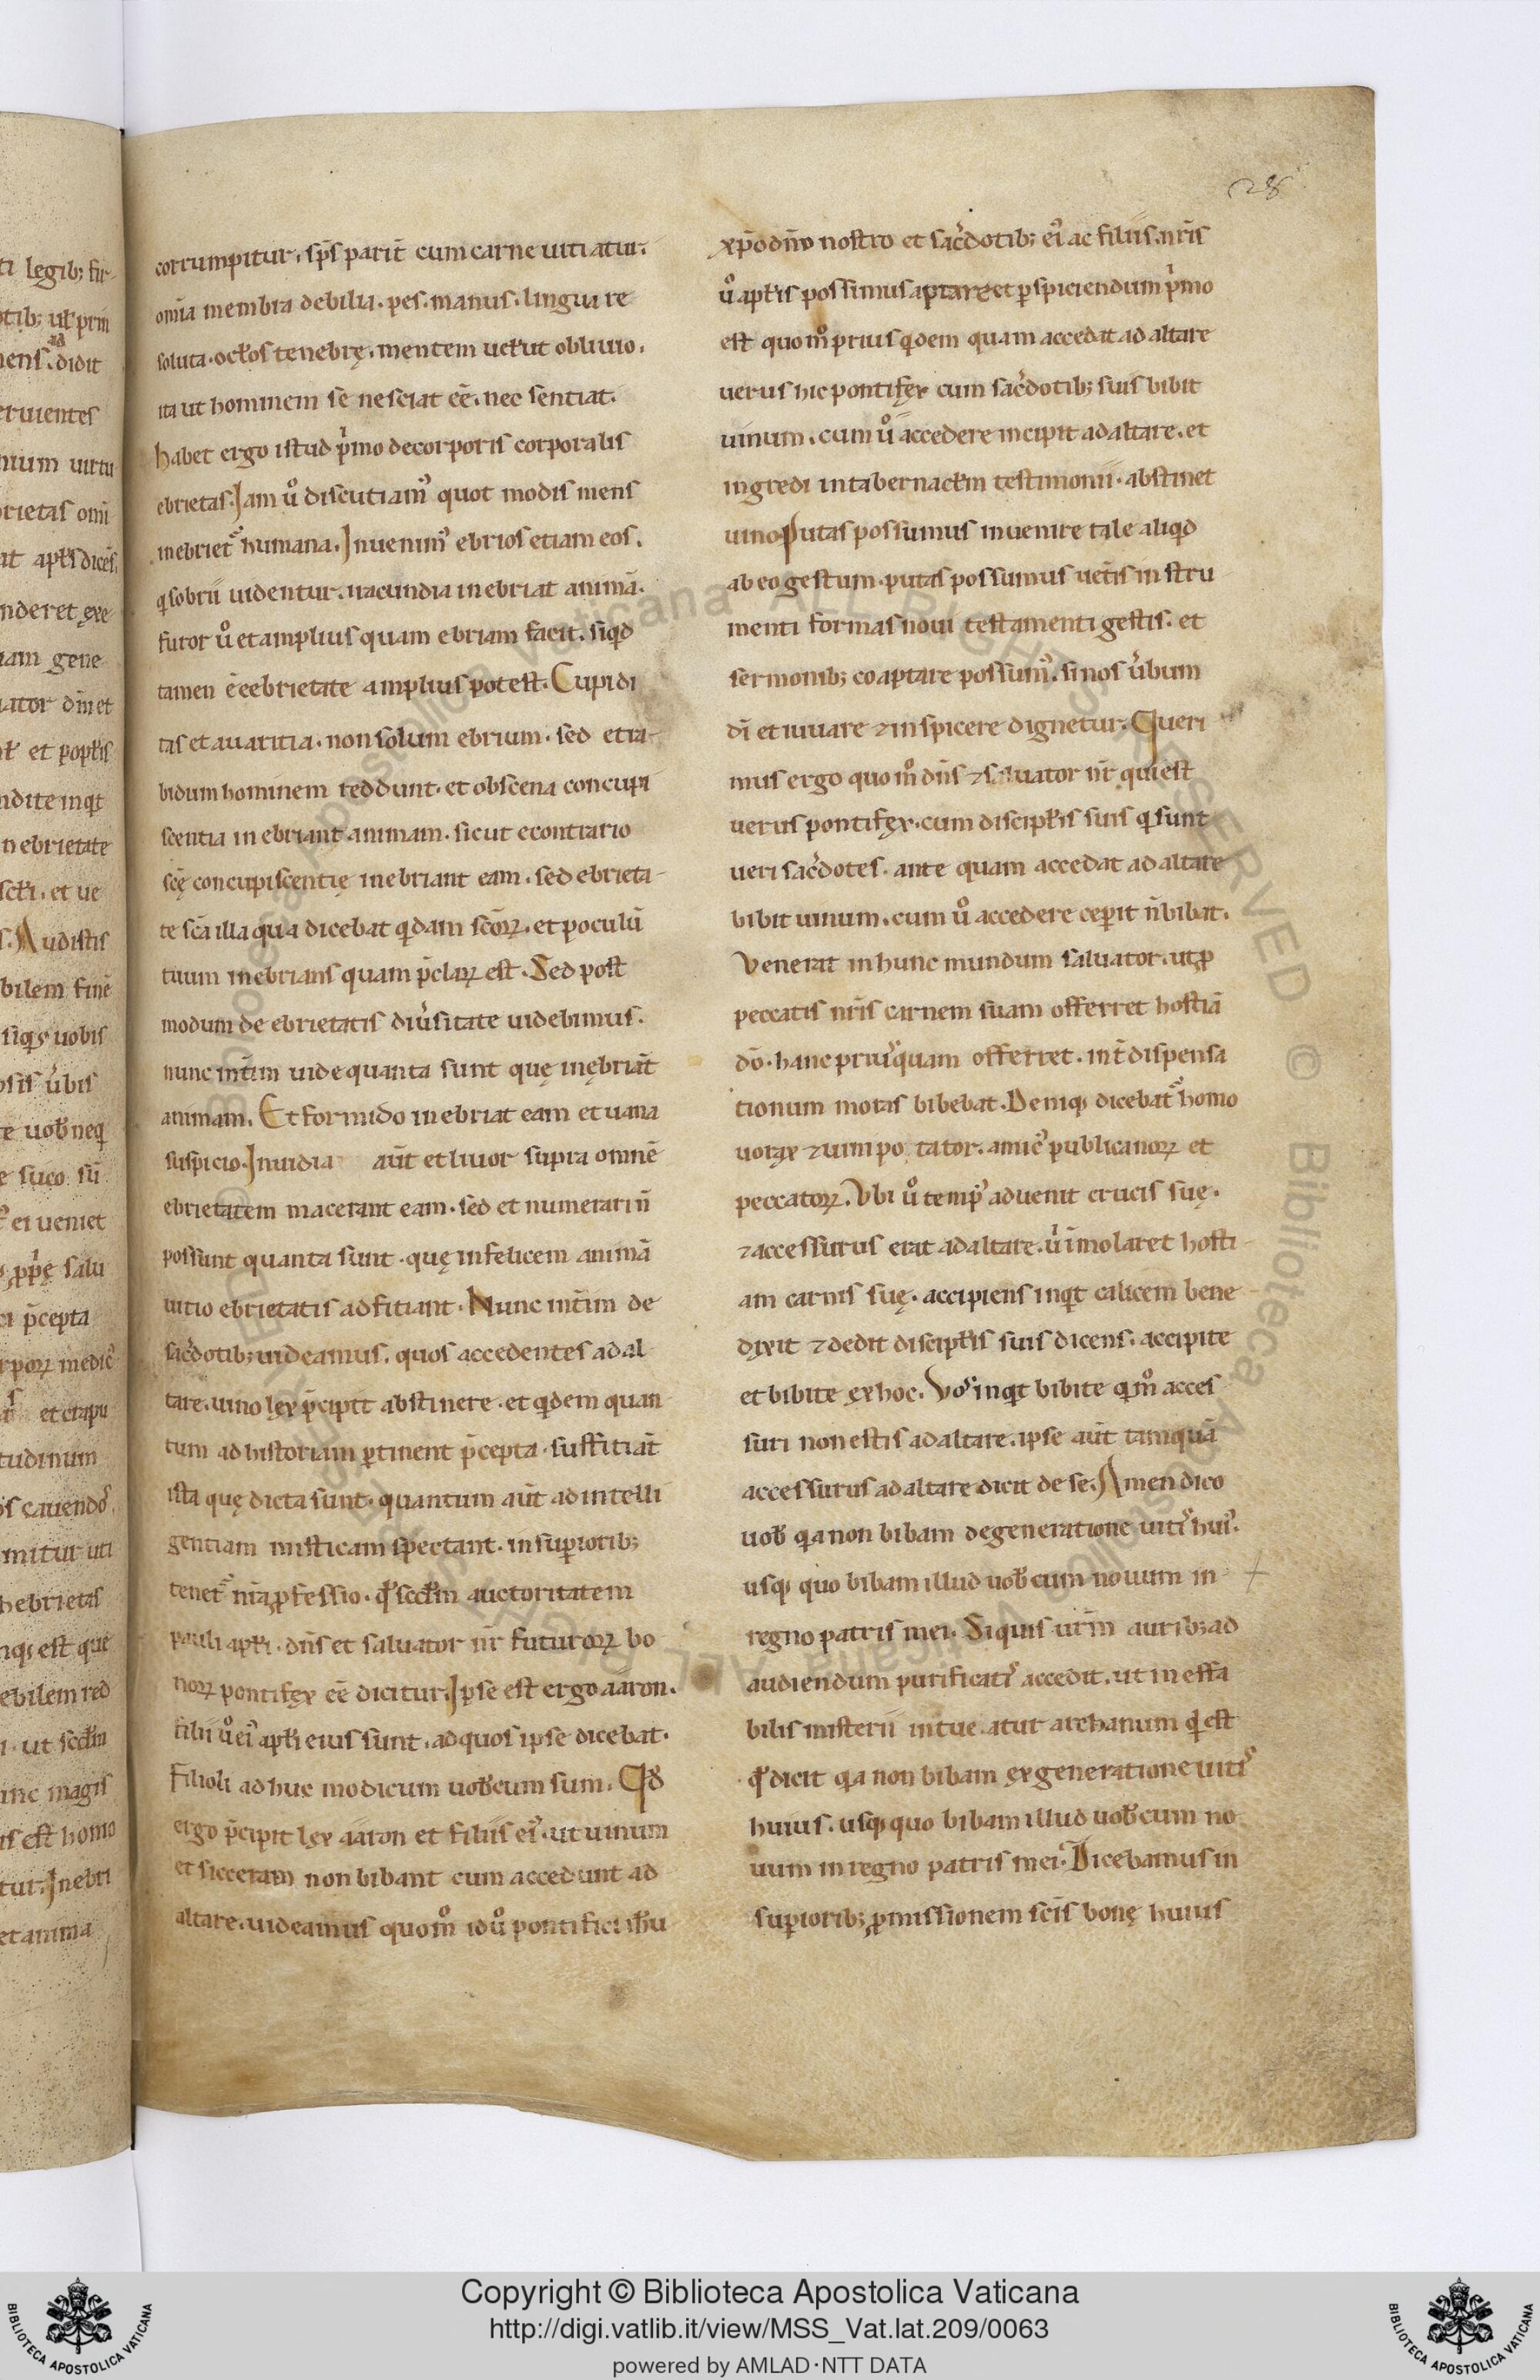 28
corrumpitur. sps̄ parit̄ cum carne uitiatur.
om̄ia membra debilia. pes. manus. lingua re
soluta. ocłos tenebrę. mentem uełut obliuio.
ita ut hominem se nesciat eē. nec sentiat.
habet ergo istud pͥmo de corporis corporalis
ebrietas. Jam uͦ discutiamꝰ quot modis mens
inebriet᷑ humana. Inuenimꝰ ebrios etiam eos.
q sobrii uidentur. iracundia inebriat animā.
furor uͦ et amplius quam ebriam facit. siqd
tamen ē ebrietate amplius potest. Cupidi
tas et auaritia. non solum ebrium. sed et ra-
bidum hominem reddunt. et obscena concupi
scentia inebriant animam. sicut econtrario
scę concupiscentię inebriant eam. sed ebrieta-
te scā illa qua dicebat qdam scōꝝ. et poculū
tuum inebrians quam p̄claꝝ est. Sed post
modum de ebrietatis diu͛sitate uidebimus.
nunc int̄im uide quanta sunt quę inębriāt
animam. Et formido inebriat eam et uana
suspicio. Inuidia aut̄ et liuor supra omnē
ebrietatem macerant eam. sed et numerari n̄
possunt quanta sunt. quę infelicem animā
uitio ebrietatis adfitiant. Nunc int̄im de
sac͛dotib; uideamus. quos accedentes ad al-
tare. uino lęx p̄cipit abstinere. et qdem quan
tum ad historiam ꝑtinent p̄cepta. suffitiāt
ista quę dicta sunt. quantum aut̄ ad intelli
gentiam misticam spectant. in supioribꝫ
tenet᷑ nr̄a ꝓfessio. qđ scđm auctoritatem
pauli apłi. dn̄s et saluator nr̄ futuroꝝ bo
noꝝ pontifęx eē dicitur. Ipse est ergo aaron.
filii uͦ eiꝰ apłi eius sunt. ad quos ipse dicebat.
Filioli adhuc modicum uobcum sum. Qđ
ergo p̄cipit lęx aaron et filiis eiꝰ. ut uinum
et sicceram non bibant cum accedunt ad
altare. uideamus quom̊ id uͦ pontifici ihu
xp̄o dn̄o nostro et sac͛dotib; eiꝰ ac filiis. nr̄is
uͦ apłis possimus aptare et pspiciendum pͥmo
est quom̊ prius qdem quam accedat ad altare
uerus hic pontifęx cum sac͛dotib; suis bibit
uinum. cum uͦ accedere incipit ad altare. et
ingredi in tabernacłm testimonii. abstinet
uino. Putas possumus inuenire tale aliqd
ab eo gestum. putas possumus uet̄is instru
menti formas noui testamenti gestis. et
sermonib; coaptare possumꝰ. si nos u͛bum
dī et iuuare ⁊ inspicere dignetur. Queri
mus ergo quom̊ dn̄s ⁊ saluator nr̄ qui est
uerus pontifęx. cum discipłis suis q sunt
ueri sac͛dotes. ante quam accedat ad altare
bibit uinum. cum uͦ accedere cepit n̄ bibat.
Venerat in hunc mundum saluator. ut ꝓ
peccatis nr̄is carnem suam offerret hostiā
dō. hanc priusquam offerret. int̄ dispensa
tionum moras bibebat. Deniq; dicebat᷑ homo
uoraęx ⁊ uini potator. amicꝰ publicanoꝝ et
peccatoꝝ. Vbi uͦ tempꝰ aduenit crucis suę.
⁊ accessurus erat ad altare. u͛ īmolaret hosti-
am carnis suę. accipiens inqt calicem bene
dixit ⁊ dedit discipłis suis dicens. accipite
et bibite ęx hoc. Vos inqt bibite qm̊ acces
suri non estis ad altare. ipse aut̄ tamquā
accessurus ad altare dicit de se. Amen dico
uob̄ qa non bibam de generatione uitis huiꝰ.
usq; quo bibam illud uob̄cum nouum in
regno patris mei. Si quis ur̄m aurib; ad
audiendum purificatiꝰ accedit. ut ineffa
bilis misterii intueatur archanum qd est
qđ dicit qa non bibam ęx generatione uitis
huius. usq; quo bibam illud uob̄cum no
uum in regno patris mei. Dicebamus in
supiorib; ꝓmissionem scīs bonę huius
Copyright © Biblioteca Apostolica Vaticana
http://digi.vatlib.it/view/MSS_Vat.lat.209/0063
powered by AMLAD·NTT DATA